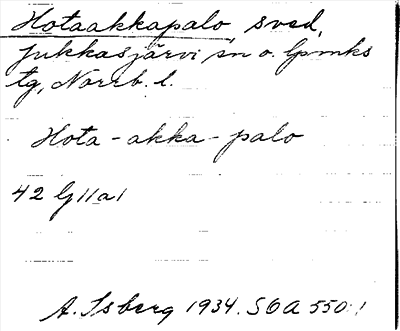 Hotaakkapalo, sved,
Jukkasjärvi sn o. lpmks
tg, Norrb. l.
Hota-akka-palo
42 g 11 a 1
A. Isberg 1934. SOA 550:1